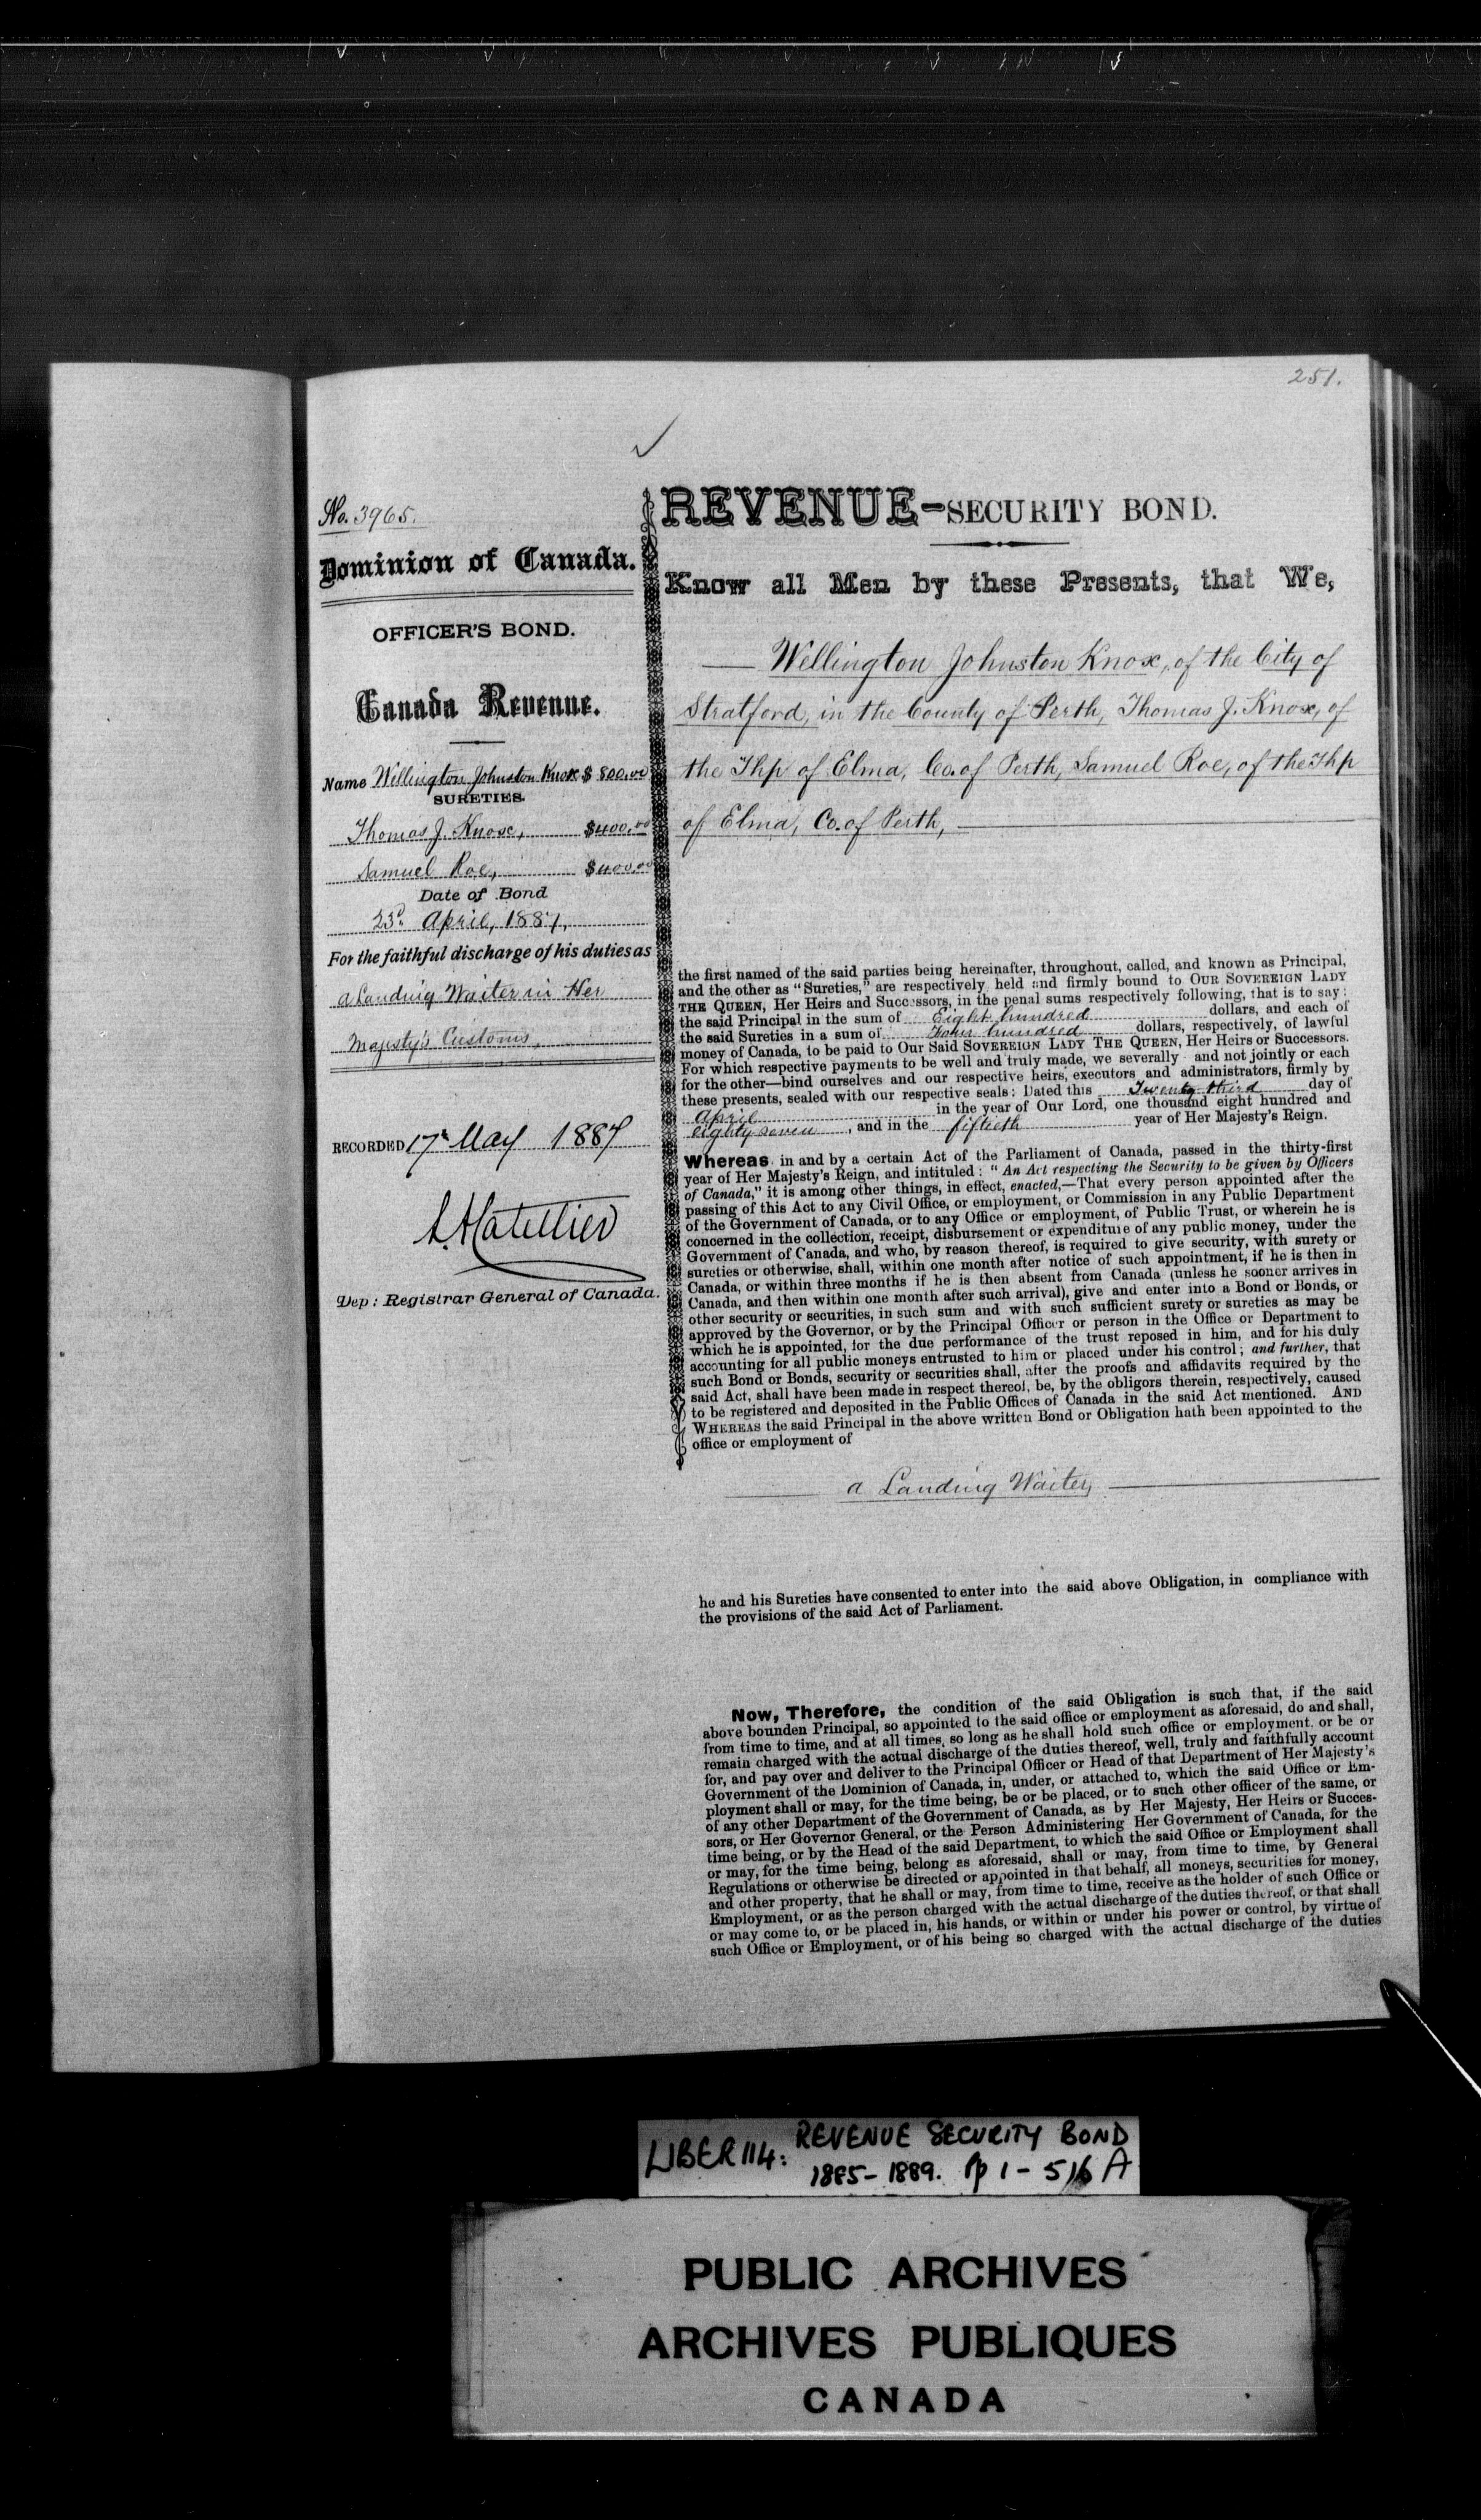 251.
No. 3965.
Dominion of Canada.
OFFICER'S BOND.
Canada Revenue.
Name Wellington Johnston Knox $800.00
SURETIES.
Thomas J. Knox, $400.00
Samuel Roe, $400.00
Date of Bond
23d. April, 1887,
For the faithful discharge of his duties as
a Landing Waiter in Her
Majesty's Customs,
RECORDED 17th May 1887
Dep: Registrar General of Canada.
REVENUE-SECURITY BOND.
Know all Men by these Presents, that We,
Wellington Johnston Knox, of the City of
Stratford, in the County of Perth, Thomas J. Knox, of
the Thp of Elma, Co. of Perth, Samuel Roe, of the Thp
of Elma, Co. of Perth,
the first named of the said parties being hereinafter, throughout, called, and known as Principal,
and the other as "Sureties," are respectively held and firmly bound to OUR SOVEREIGN LADY
THE QUEEN, Her Heirs and Successors, in the penal sums respectively following, that is to say:
the said Principal in the sum of Eight hundred dollars, and each of
the said Sureties in a sum of Four hundred dollars, respectively, of lawful
money of Canada, to be paid to Our Said SOVEREIGN LADY THE QUEEN, Her Heirs or Successors.
For which respective payments to be well and truly made, we severally and not jointly or each
for the other—bind ourselves and our respective heirs, executors and administrators, firmly by
these presents, sealed with our respective seals: Dated this Twenty third day of
April in the year of Our Lord, one thousand eight hundred and
eighty seven, and in the fiftieth year of Her Majesty's Reign.
Whereas in and by a certain Act of the Parliament of Canada, passed in the thirty-first
year of Her Majesty's Reign, and intituled: "An Act respecting the Security to be given by Officers
of Canada," it is among other things, in effect, enacted,—That every person appointed after the
passing of this Act to any Civil Office, or employment, or Commission in any Public Department
of the Government of Canada, or to any Office or employment, of Public Trust, or wherein he is
concerned in the collection, receipt, disbursement or expenditure of any public money, under the
Government of Canada, and who, by reason thereof, is required to give security, with surety or
sureties or otherwise, shall, within one month after notice of such appointment, if he is then in
Canada, or within three months if he is then absent from Canada (unless he sooner arrives in
Canada, and then within one month after such arrival), give and enter into a Bond or Bonds, or
other security or securities, in such sum and with such sufficient surety or sureties as may be
approved by the Governor, or by the Principal Officer or person in the Office or Department to
which he is appointed, for the due performance of the trust reposed in him, and for his duly
accounting for all public moneys entrusted to him or placed under his control; and further, that
such Bond or Bonds, security or securities shall, after the proofs and affidavits required by the
said Act, shall have been made in respect thereof, be, by the obligors therein, respectively, caused
to be registered and deposited in the Public Offices of Canada in the said Act mentioned. AND
WHEREAS the said Principal in the above written Bond or Obligation hath been appointed to the
office or employment of
a Landing Waiter,
he and his Sureties have consented to enter into the said above Obligation, in compliance with
the provisions of the said Act of Parliament.
Now, Therefore, the condition of the said Obligation is such that, if the said
above bounden Principal, so appointed to the said office or employment as aforesaid, do and shall,
from time to time, and at all times, so long as he shall hold such office or employment, or be or
remain charged with the actual discharge of the duties thereof, well, truly and faithfully account
for, and pay over and deliver to the Principal Officer or Head of that Department of Her Majesty's
Government of the Dominion of Canada, in, under, or attached to, which the said Office or Em-
ployment shall or may, for the time being, be or be placed, or to such other officer of the same, or
of any other Department of the Government of Canada, as by Her Majesty, Her Heirs or Succes-
sors, or Her Governor General, or the Person Administering Her Government of Canada, for the
time being, or by the Head of the said Department, to which the said Office or Employment shall
or may, for the time being, belong as aforesaid, shall or may, from time to time, by General
Regulations or otherwise be directed or appointed in that behalf, all moneys, securities for money,
and other property, that he shall or may, from time to time, receive as the holder of such Office or
Employment, or as the person charged with the actual discharge of the duties thereof, or that shall
or may come to, or be placed in, his hands, or within or under his power or control, by virtue of
such Office or Employment, or of his being so charged with the actual discharge of the duties
LIBER 114: REVENUE SECURITY BOND
1885-1889. pp 1-516A
PUBLIC ARCHIVES
ARCHIVES PUBLIQUES
CANADA